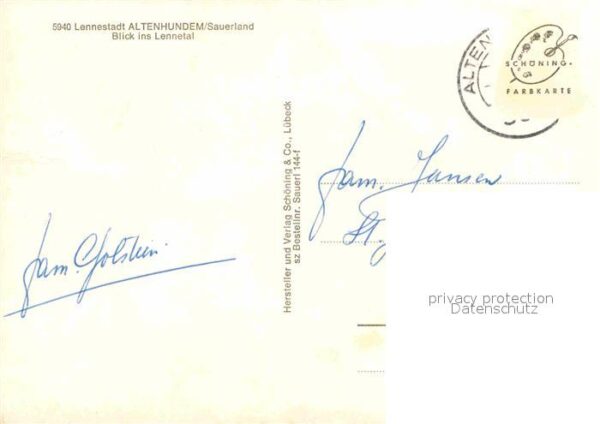 5940 Lennestadt ALTENHUNDEM/Sauerland
Blick ins Lennetal
ALTEN
SCHÖNING
FARBKARTE
Hersteller und Verlag Schöning & Co., Lübeck
sz Bestellnr. Sauerl 144-f
fam. Jansen
St.
fam. Golstein
privacy protection
Datenschutz